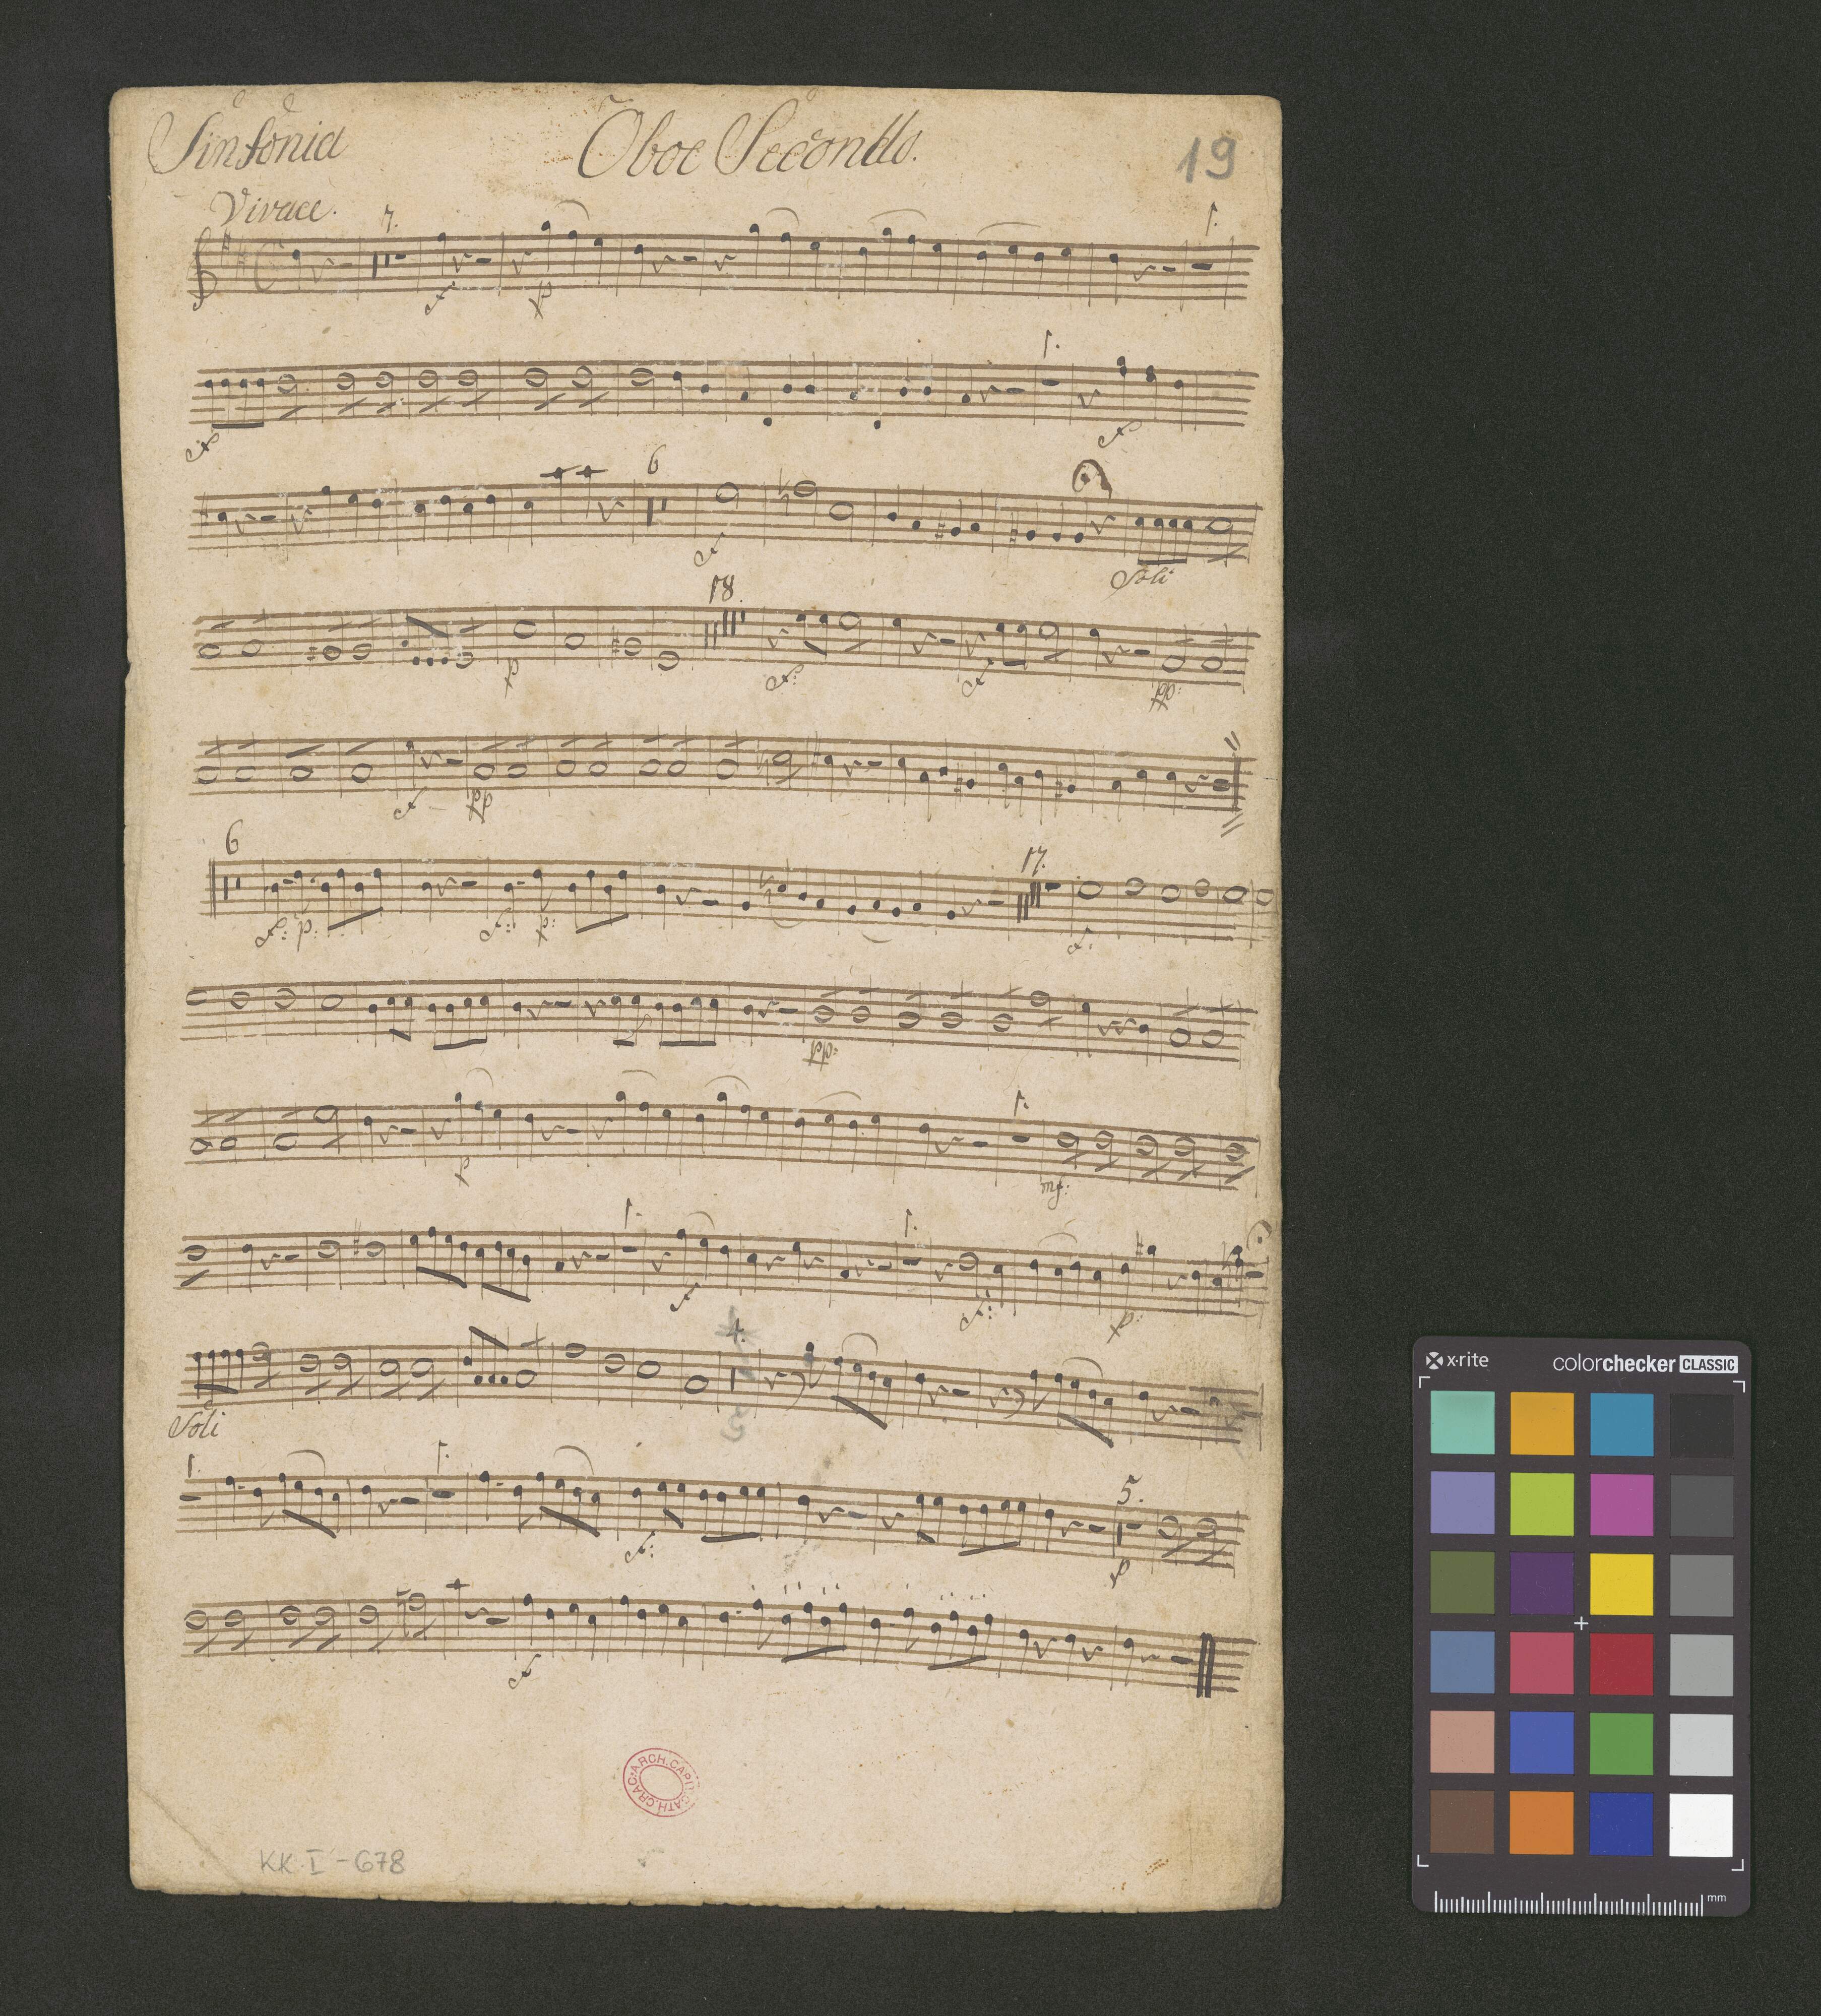 Sinfonia Oboe Secondo.
19
Vivace.
7.
1.
f
p
1.
f
f
6
f
Soli
18.
p
f:
f
pp:
f
pp
6
f: p:
f:
p:
17.
f:
pp:
p
1.
mf:
1.
1.
f
f:
p:
4.
Soli
1.
1.
f:
5.
p
f
ARCH.CAPIT.CATH.CRAC.
KK I-678
x·rite colorchecker CLASSIC
mm